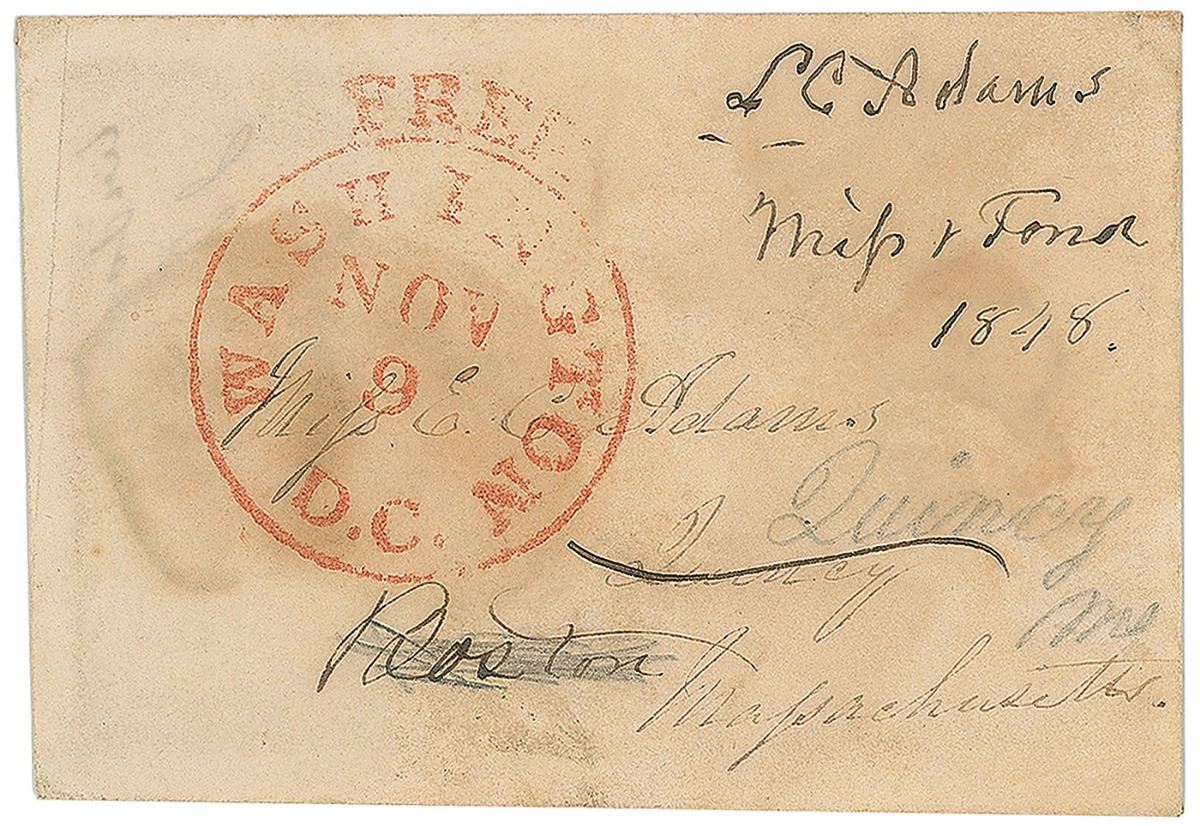 FREE
L C Adams
WASHINGTON
NOV
9
D.C.
1848.
Miſs E. C. Adams
Quincy
Quincy
Boston
Ms
Maſsachusetts.